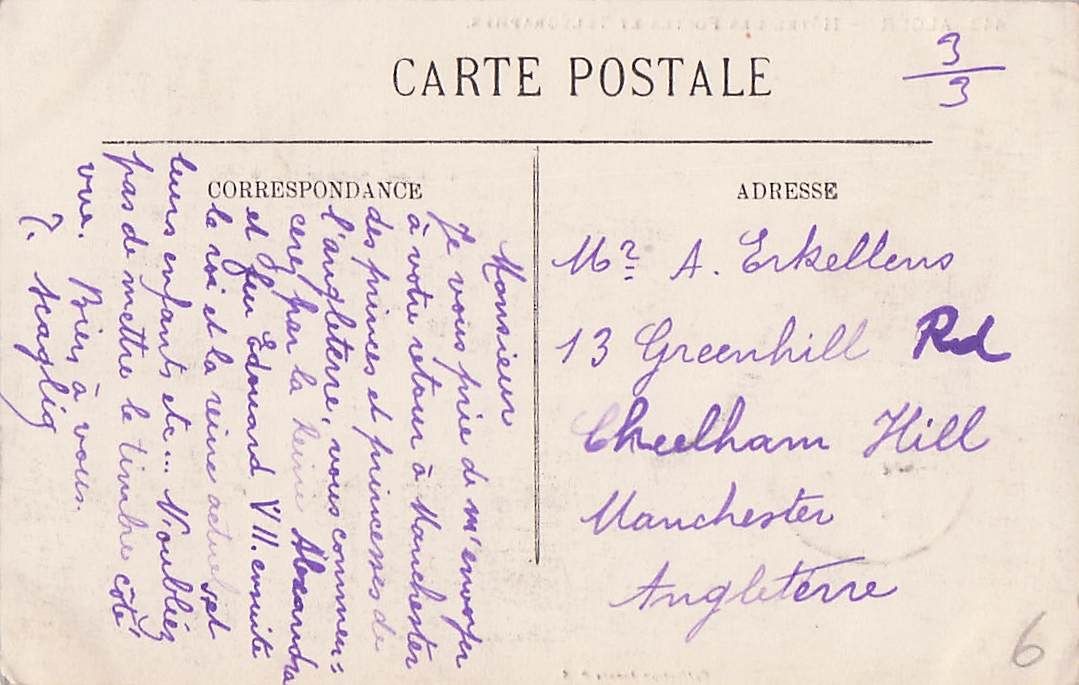 CARTE POSTALE
3
3
CORRESPONDANCE
Monsieur
Je vous prie de m'envoyer
à votre retour à Manchester
des princes et princesses de
l'angleterre, vous commen=
cerez par la Reine Alexandra
et feu Edouard VII. ensuite
le roi et la reine actuel et
leurs enfants etc... N'oubliez
pas de mettre le timbre côté
vue. Bien à vous.
ADRESSE
Mr A. Erkellens
13 Greenhill Rd
Cheelham Hill
Manchester
Angleterre
6